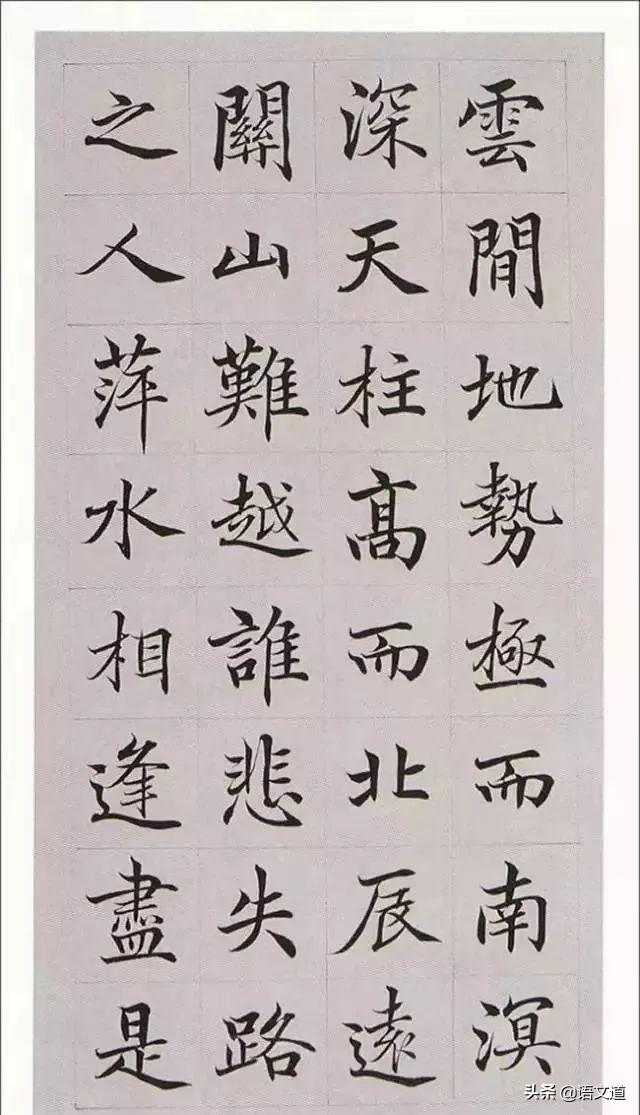 雲間地勢極而南溟
深天柱高而北辰遠
關山難越誰悲失路
之人萍水相逢盡是
头条 @语文道